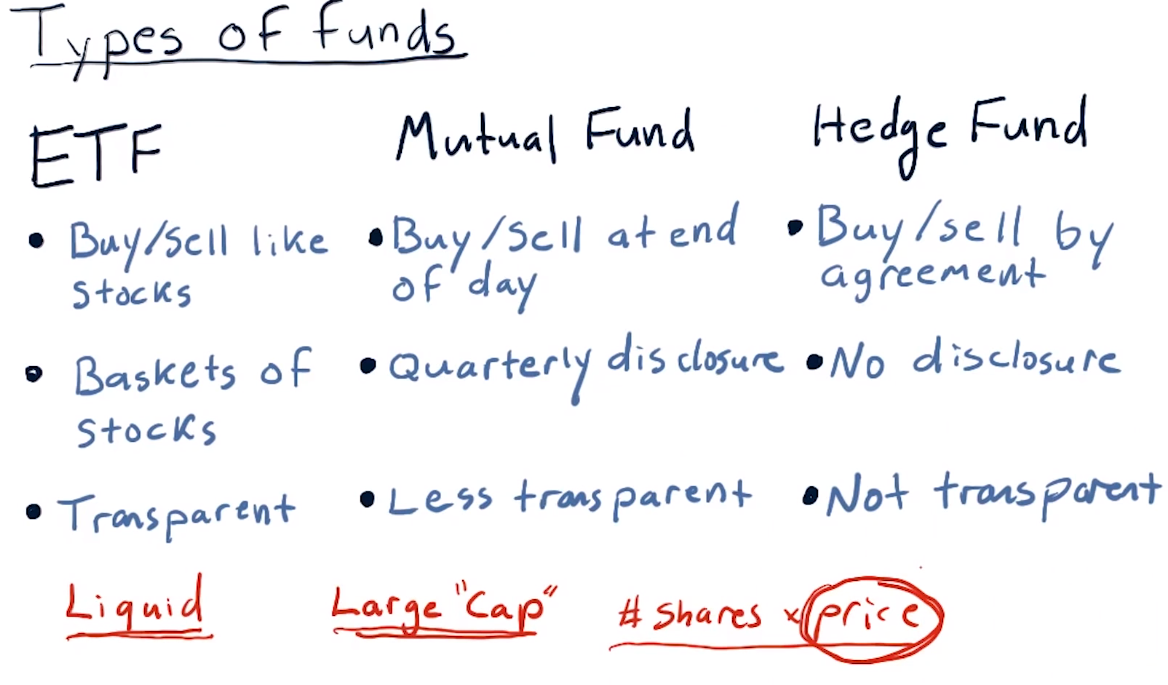 Types of funds
ETF
• Buy/sell like
stocks
• Baskets of
stocks
• Transparent
Mutual Fund
• Buy/Sell at end
of day
• Quarterly disclosure
• Less transparent
Hedge Fund
• Buy/sell by
agreement
• No disclosure
• Not transparent
Liquid
Large "Cap"
# shares × price